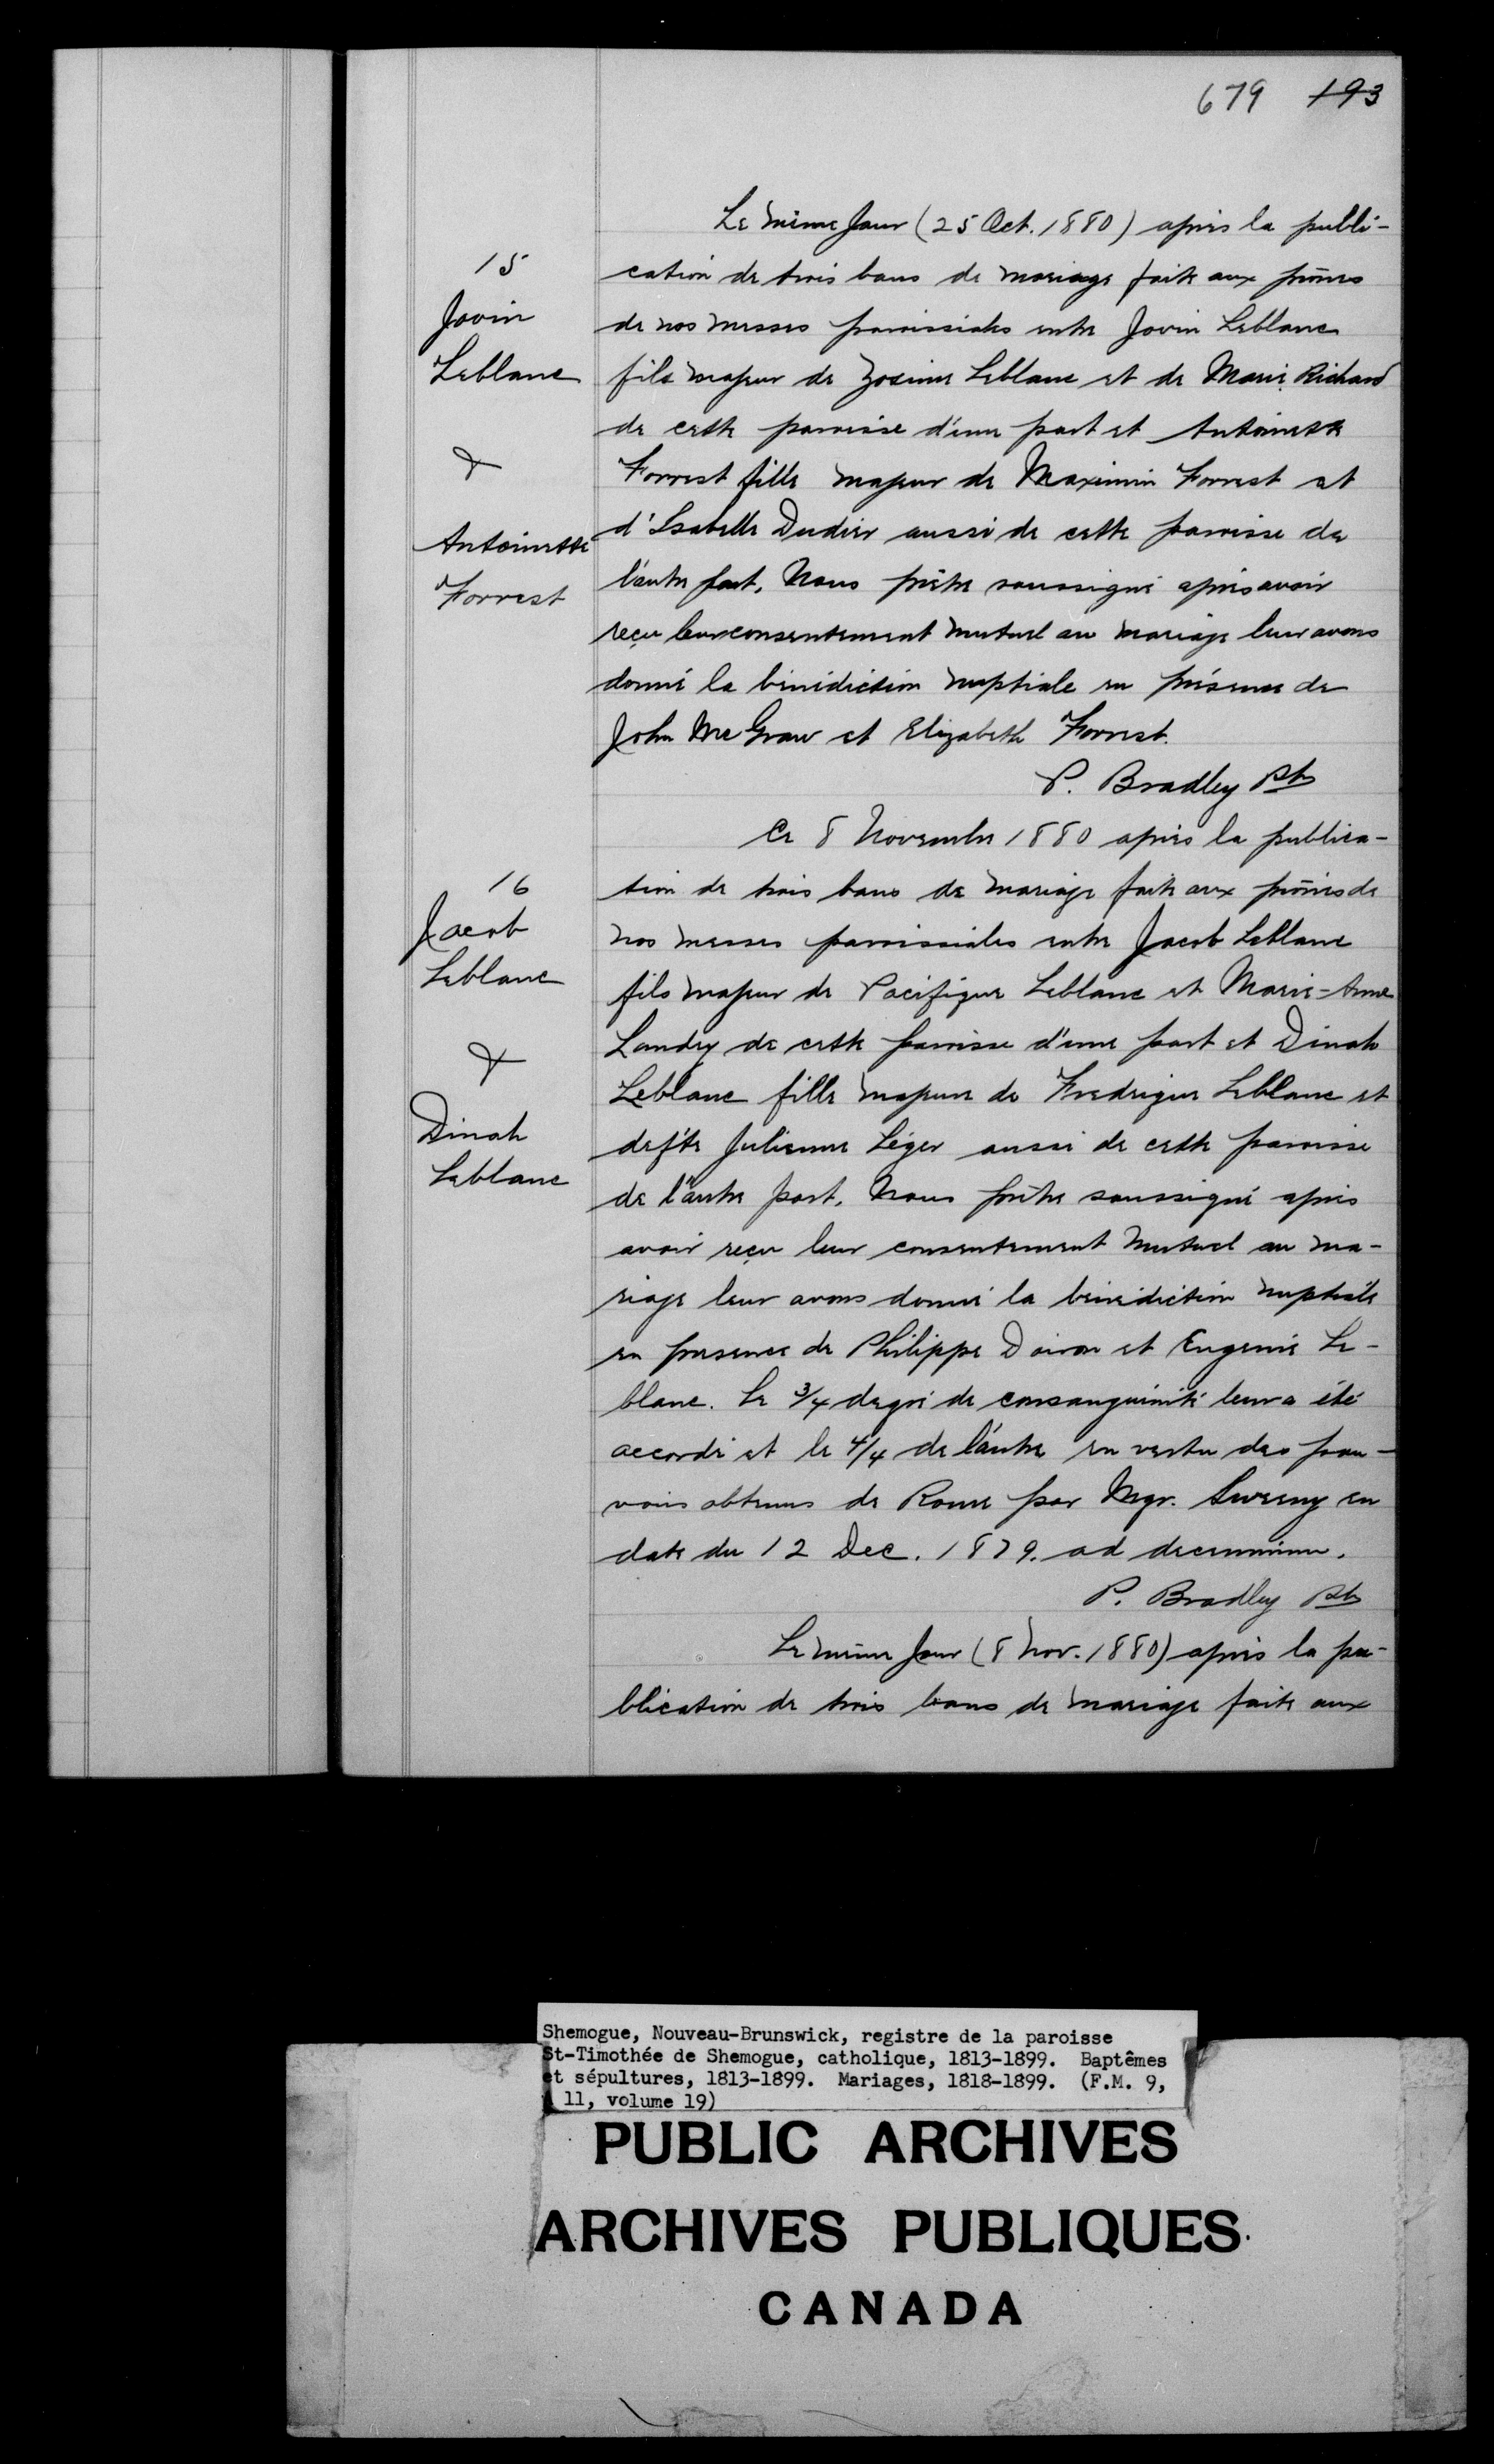 679 193
Le même Jour (25 Oct. 1880) après la publi-
cation de trois bans de mariage faite aux prônes
de nos messes paroissiales entre Jovin Leblanc
fils majeur de Zosime Leblanc et de Marie Richard
de cette paroisse d'une part et Antoinette
Forrest fille majeur de Maximin Forrest et
d'Isabelle Dudier aussi de cette paroisse de
l'autre part, Nous prêtre soussigné après avoir
reçu leur consentement mutuel au mariage leur avons
donné la bénédiction nuptiale en présence de
John McGraw et Elizabeth Forrest.
P. Bradley Ptr
15
Jovin
Leblanc
&
Antoinette
Forrest
Ce 8 Novembre 1880 après la publica-
tion de trois bans de mariage faite aux prônes de
nos messes paroissiales entre Jacob Leblanc
fils majeur de Pacifique Leblanc et Marie-Anne
Landry de cette paroisse d'une part et Dinah
Leblanc fille majeure de Frederique Leblanc et
de fte Julienne Léger aussi de cette paroisse
de l'autre part, Nous prêtre soussigné après
avoir reçu leur consentement mutuel au ma-
riage leur avons donné la bénédiction nuptiale
en presence de Philippe Doiron et Eugenie Le-
blanc. Le 3/4 degré de consanguinité leur a été
accordé et le 4/4 de l'autre en vertu des pou-
voirs obtenus de Rome par Mgr. Sweeny en
date du 12 Dec. 1879. ad decennium.
P. Bradley Ptr
16
Jacob
Leblanc
&
Dinah
Leblanc
Le même Jour (8 Nov. 1880) après la pu-
blication de trois bans de mariage faite aux
Shemogue, Nouveau-Brunswick, registre de la paroisse
St-Timothée de Shemogue, catholique, 1813-1899. Baptêmes
et sépultures, 1813-1899. Mariages, 1818-1899. (F.M. 9,
11, volume 19)
PUBLIC ARCHIVES
ARCHIVES PUBLIQUES
CANADA